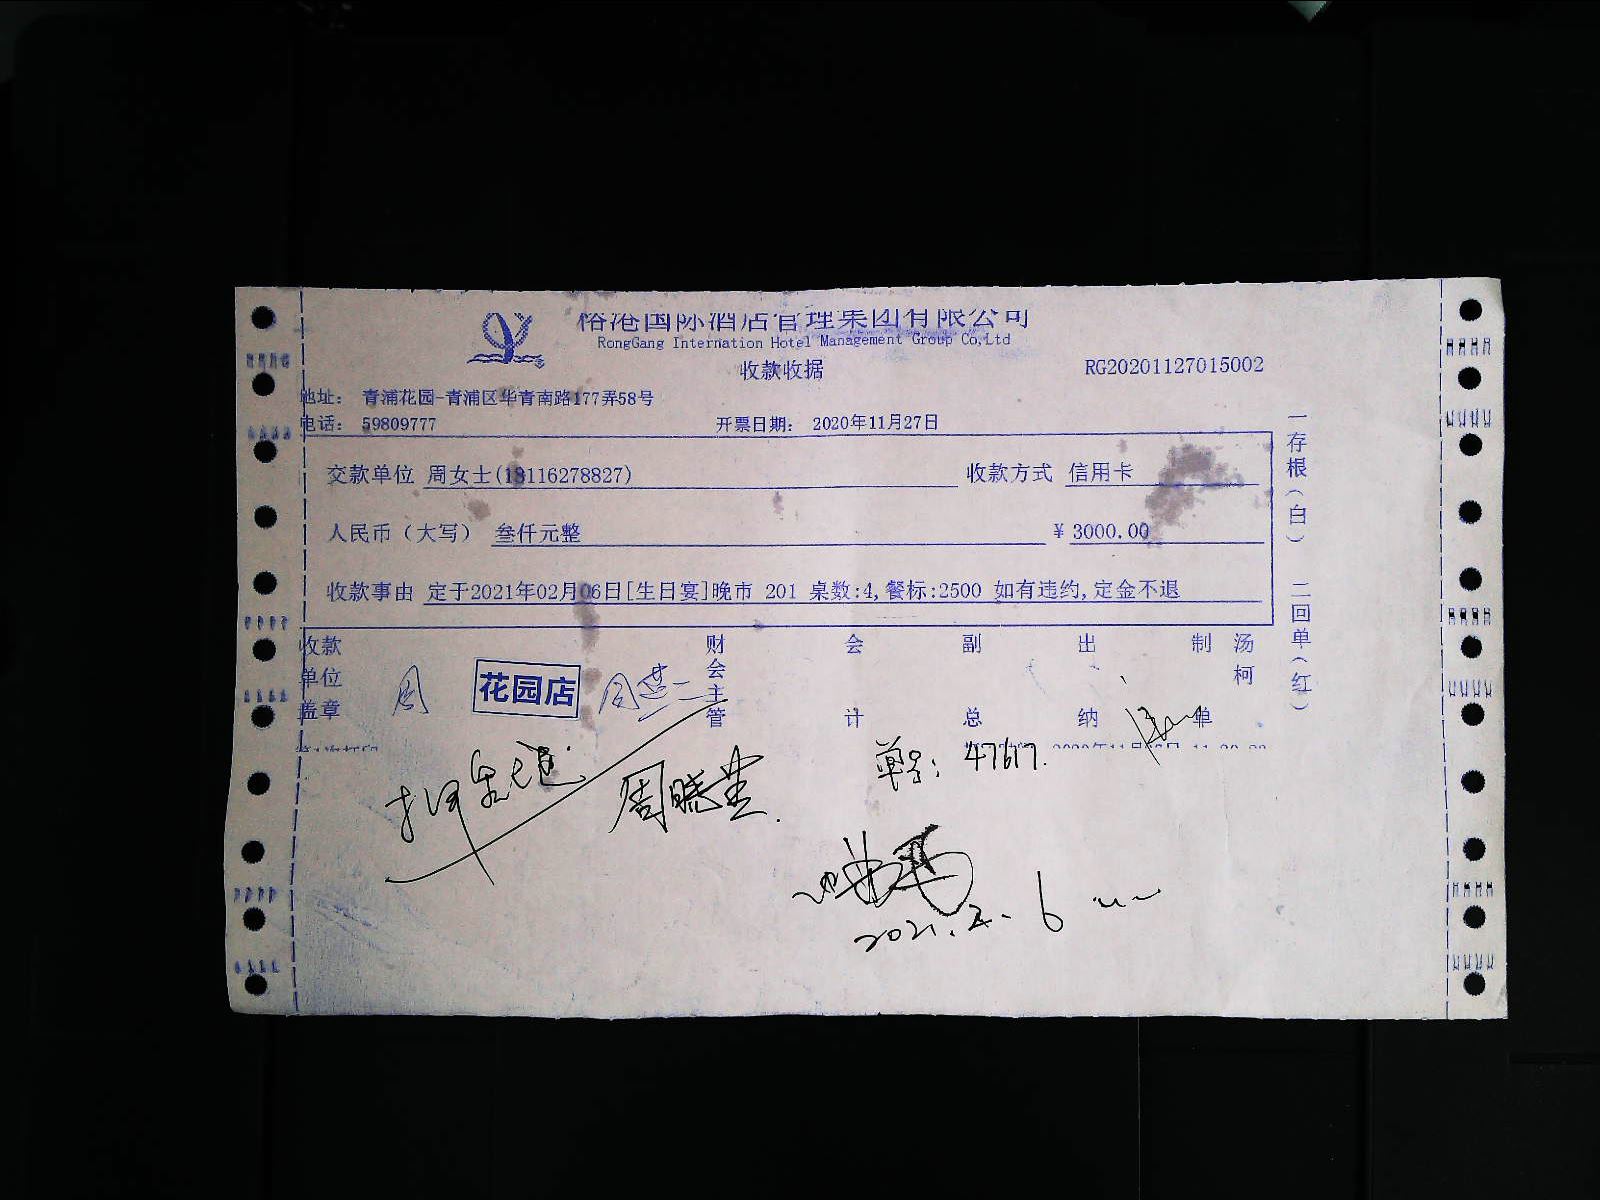 榕港国际酒店管理集团有限公司
RongGang Internation Hotel Management Group Co,Ltd
收款收据 RG20201127015002
地址： 青浦花园-青浦区华青南路177弄58号
电话： 59809777 开票日期： 2020年11月27日
交款单位 周女士(18116278827) 收款方式 信用卡
人民币（大写） 叁仟元整 ￥ 3000.00
收款事由 定于2021年02月06日[生日宴]晚市 201 桌数:4,餐标:2500 如有违约,定金不退
收款单位盖章 周 花园店 财会主管 会计 副总 出纳 制单 汤柯
一存根（白） 二回单（红）
押金已退 周晓莹. 单号: 47617.
2021.2.6